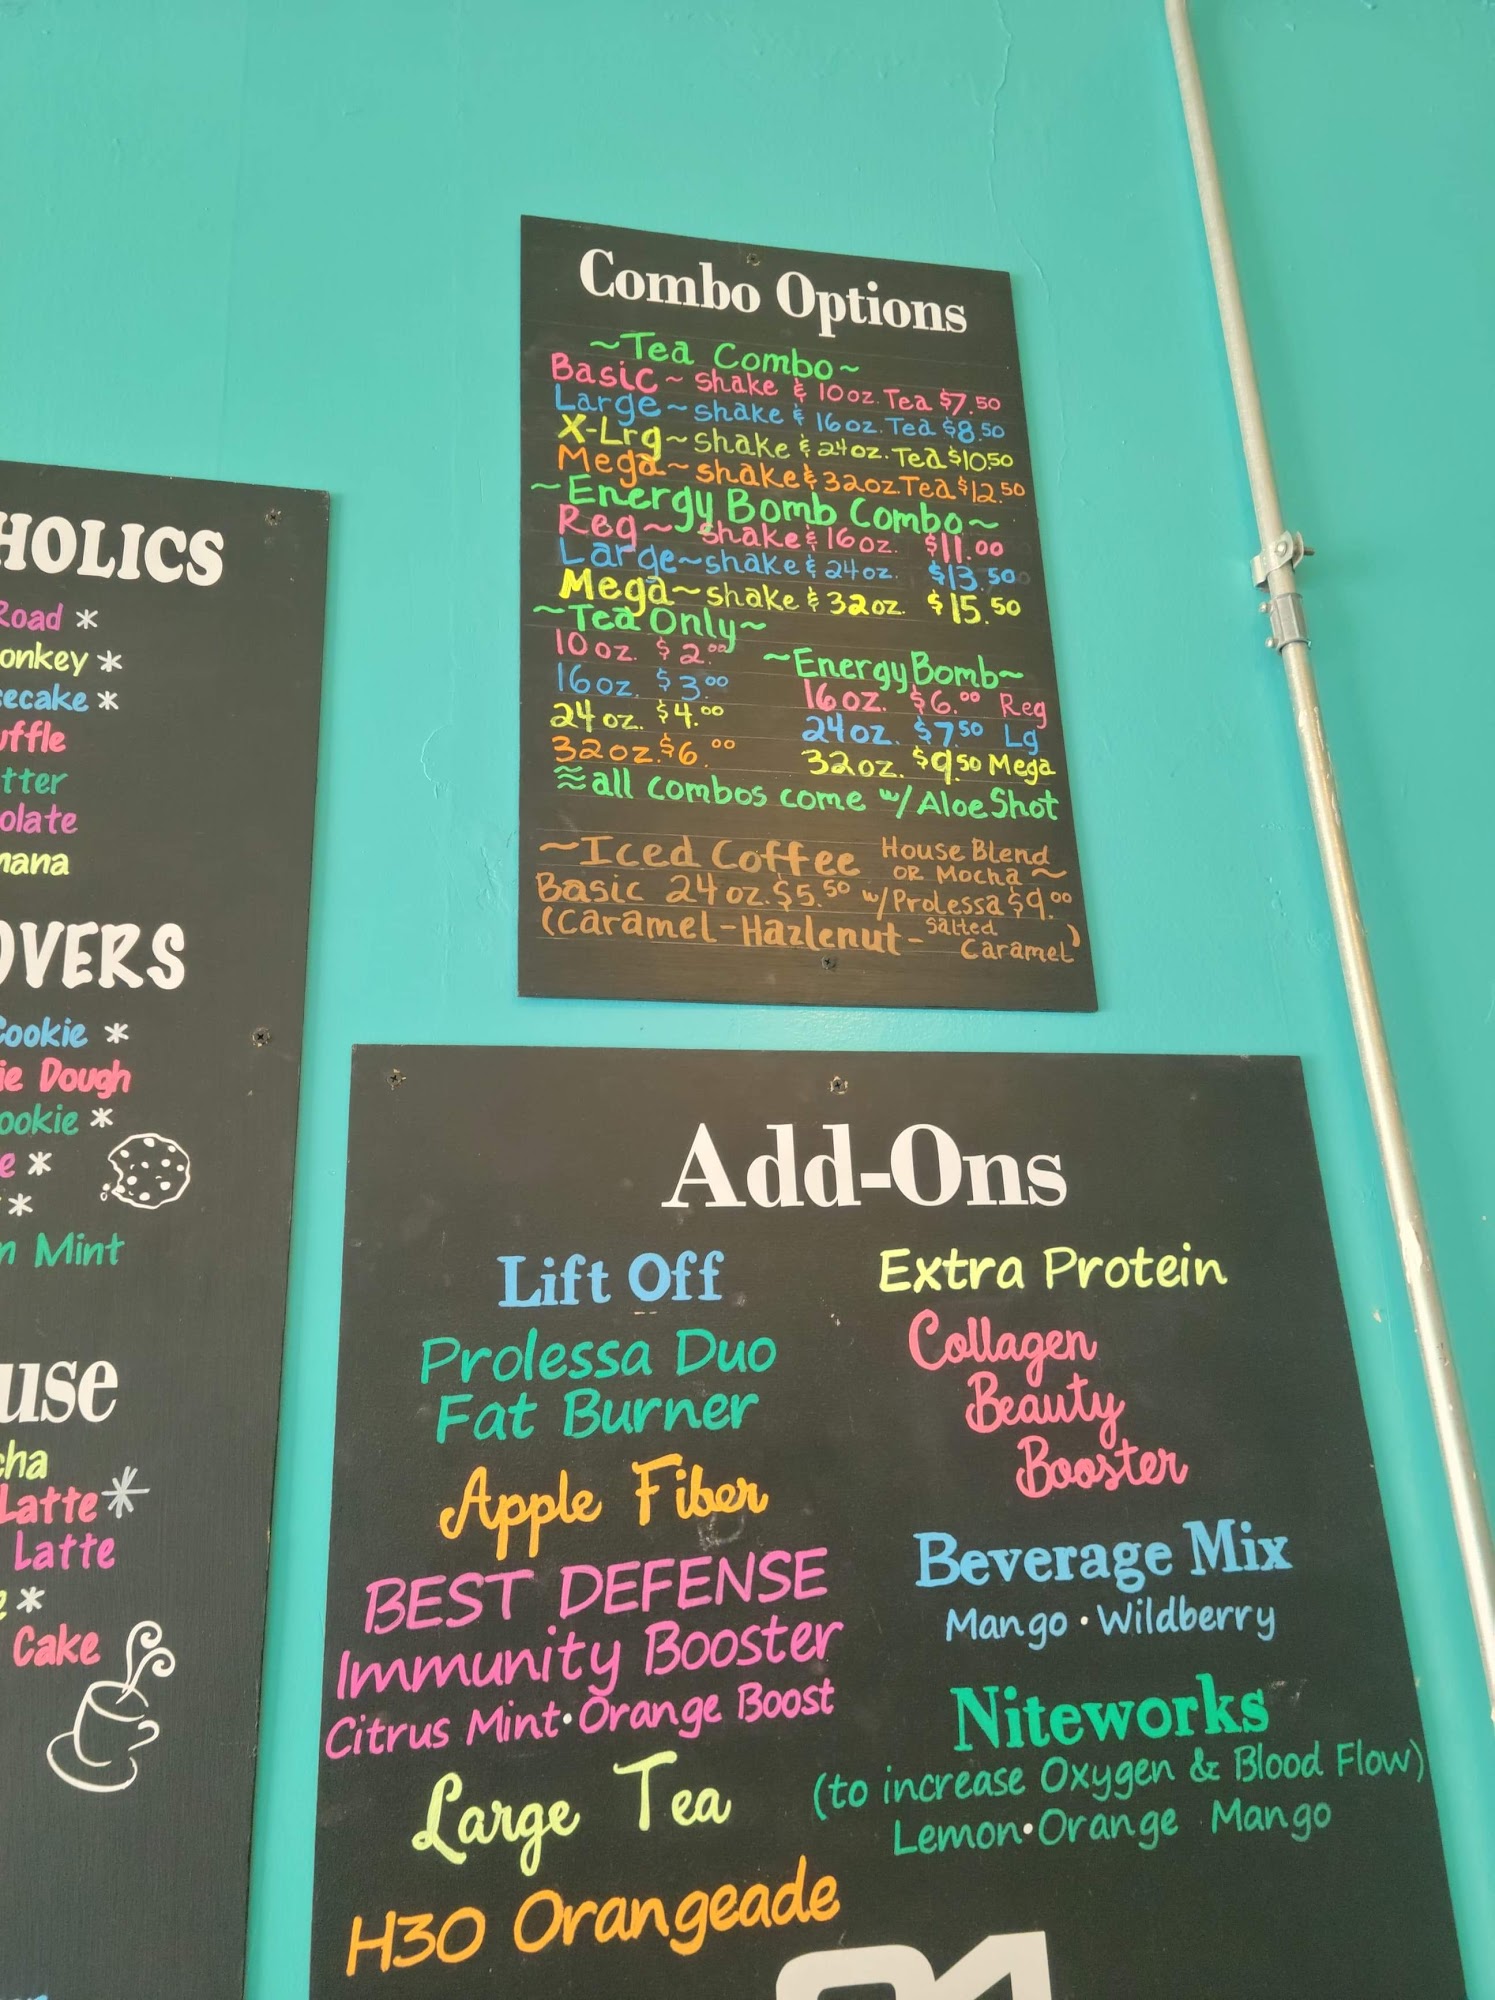 Combo Options
~Tea Combo~
Basic~ shake & 10oz. Tea $7.50
Large~shake & 16oz. Tea $8.50
X-Lrg~shake & 24oz. Tea $10.50
Mega~shake & 32oz Tea $12.50
~Energy Bomb Combo~
Reg~ shake & 16oz. $11.00
Large~shake & 24oz. $13.50
Mega~shake & 32oz. $15.50
~Tea Only~
10oz. $2.00
16oz. $3.00
24oz. $4.00
32oz. $6.00
~Energy Bomb~
16oz. $6.00 Reg
24oz. $7.50 Lg
32oz. $9.50 Mega
≈all combos come w/ Aloe Shot
~Iced Coffee House Blend OR Mocha~
Basic 24oz. $5.50 w/Prolessa $9.00
(Caramel-Hazlenut- Salted Caramel)
HOLICS
Road *
onkey *
ecake *
uffle
tter
olate
nana
OVERS
Cookie *
ie Dough
ookie *
e *
*
n Mint
use
cha
Latte *
Latte
e *
Cake
Add-Ons
Lift Off
Prolessa Duo
Fat Burner
Apple Fiber
BEST DEFENSE
Immunity Booster
Citrus Mint•Orange Boost
Large Tea
H3O Orangeade
Extra Protein
Collagen
Beauty
Booster
Beverage Mix
Mango • Wildberry
Niteworks
(to increase Oxygen & Blood Flow)
Lemon•Orange Mango